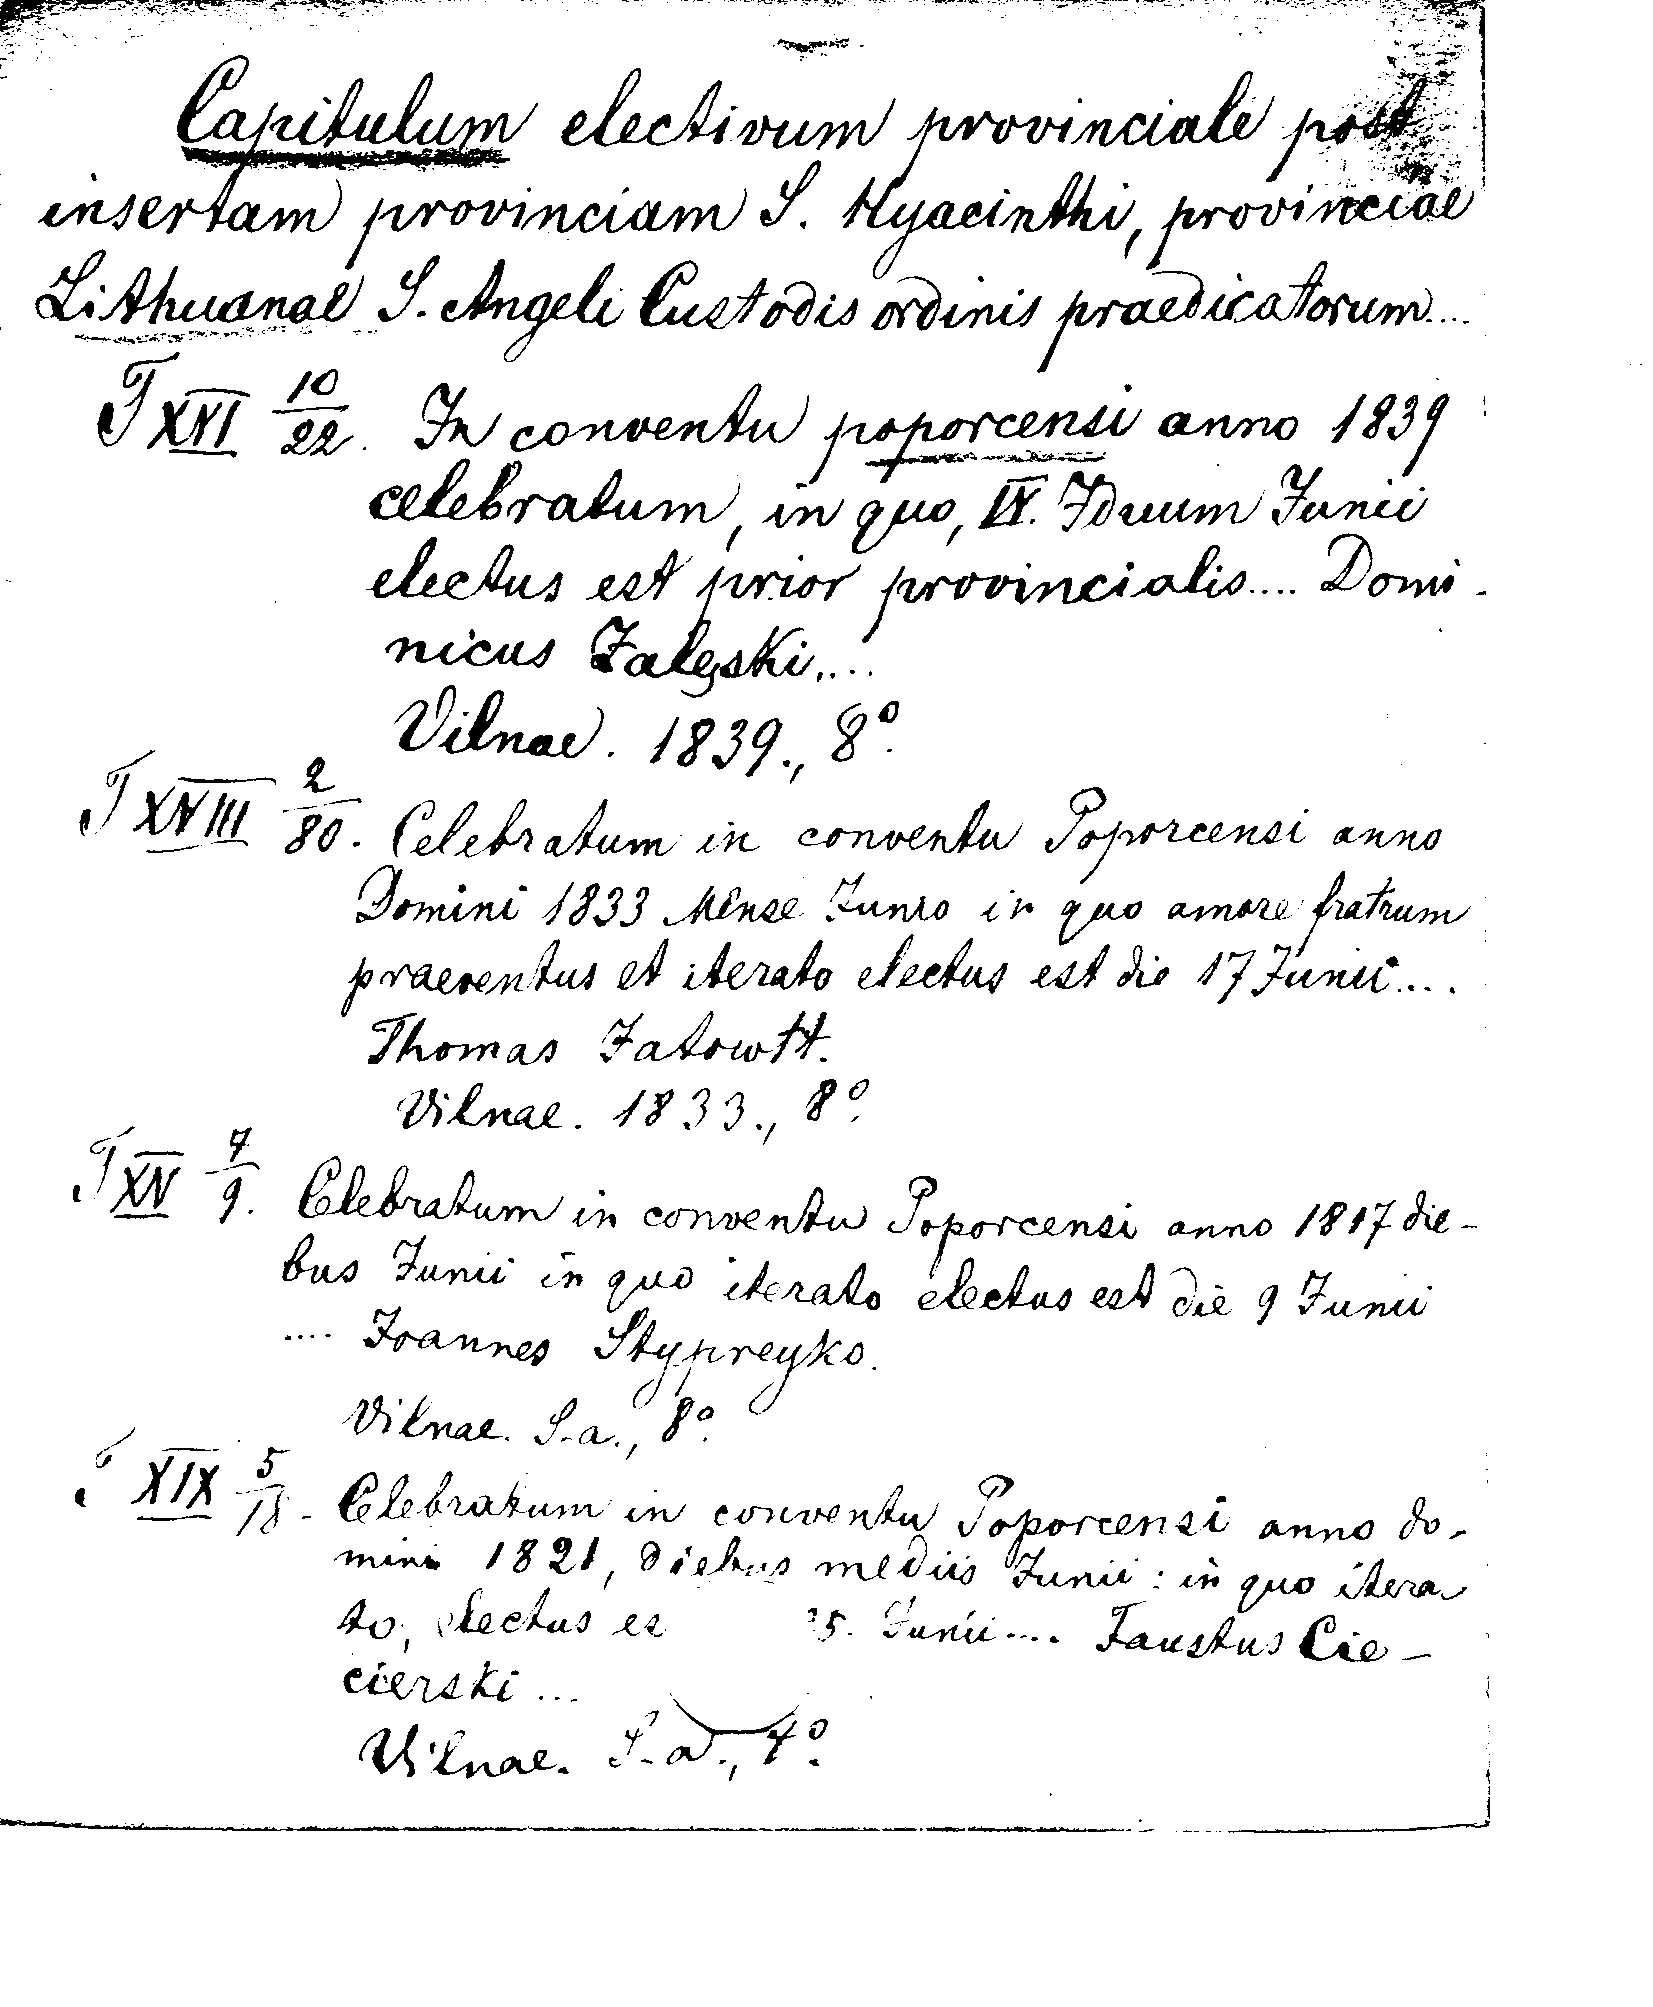 Capitulum electivum provinciale post
insertam provinciam S. Hyacinthi, provinciae
Lithuanae S. Angeli Custodis ordinis praedicatorum....
T XVI 10/22. In conventu poporcensi anno 1839
celebratum, in quo, IX. Iduum Junii
electus est prior provincialis.... Domi-
nicus Zaleski....
Vilnae. 1839., 8º.
T XVIII 2/80. Celebratum in conventu Poporcensi anno
Domini 1833 Mense Junio in quo amore fratrum
praeventus et iterato electus est die 17 Junii....
Thomas Jatowtt.
Vilnae. 1833., 8º.
T XV 7/9. Celebratum in conventu Poporcensi anno 1817 die-
bus Junii in quo iterato electus est die 9 Junii
.... Joannes Stypreyko.
Vilnae. S.a., 8º.
T XIX 5/18. Celebratum in conventu Poporcensi anno do-
mini 1821, diebus mediis Junii: in quo itera
to, electus es 5. Junii.... Faustus Cie-
cierski...
Vilnae. S.a., 4º.